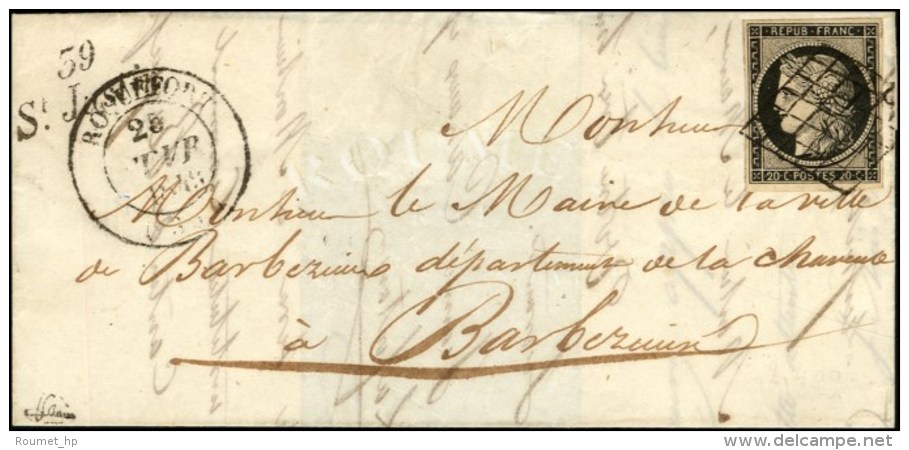 39
St J
ROQUEFORT
28
REPUB·FRANC
20 C POSTES 20 C
Monsieur
Monsieur le Maire de la ville
de Barbezieux département de la Charente
à Barbezieux
Roumet_hp
www.delcampe.net